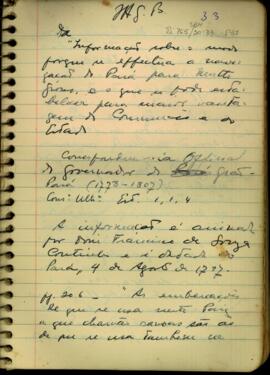 I.H.G.B 33
"Informação sobre o modo
porque se effectua a nave-
gação do Pará para Matto
Grosso, e o que se pode esta-
belecer para maior vanta-
gem do Commercio e do
Estado
Correspondencia Official
do governador do Grão-
Pará (1777-1807)
Cons. Ultr. Est. 1, 1, 4
A informação é assinada
por Dom Francisco de Souza
Coutinho e é datada do
Pará, 4 de Agosto de 1797.
pg. 206 - "As embarcações
de que se usa neste Paiz
a que chamão canoas são as
de que se usa tambem na